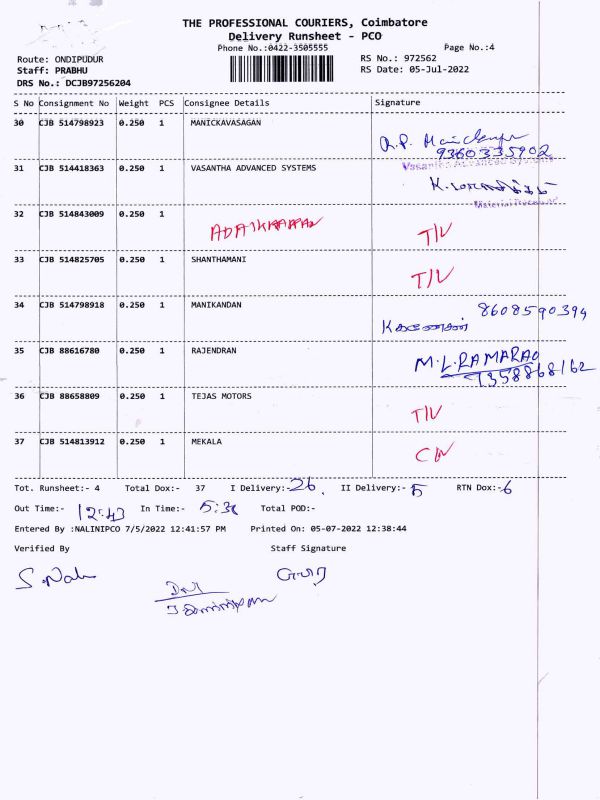 THE PROFESSIONAL COURIERS, Coimbatore
Delivery Runsheet - PCO
Phone No.:0422-3505555
Page No.:4
Route: ONDIPUDUR
RS No.: 972562
Staff: PRABHU
RS Date: 05-Jul-2022
DRS No.: DCJB97256204
S No Consignment No Weight PCS Consignee Details Signature
30 CJB 514798923 0.250 1 MANICKAVASAGAN
9360335902
31 CJB 514418363 0.250 1 VASANTHA ADVANCED SYSTEMS
32 CJB 514843009 0.250 1 T/L
33 CJB 514825705 0.250 1 SHANTHAMANI T/L
34 CJB 514798918 0.250 1 MANIKANDAN 8608590394
K கணேசன்
35 CJB 88616780 0.250 1 RAJENDRAN M.L.RAMARAO
36 CJB 88658809 0.250 1 TEJAS MOTORS T/L
37 CJB 514813912 0.250 1 MEKALA
Tot. Runsheet:- 4 Total Dox:- 37 I Delivery:- 26 II Delivery:- 5 RTN Dox:- 6
Out Time:- 12:43 In Time:- 5:30 Total POD:-
Entered By :NALINIPCO 7/5/2022 12:41:57 PM Printed On: 05-07-2022 12:38:44
Verified By Staff Signature